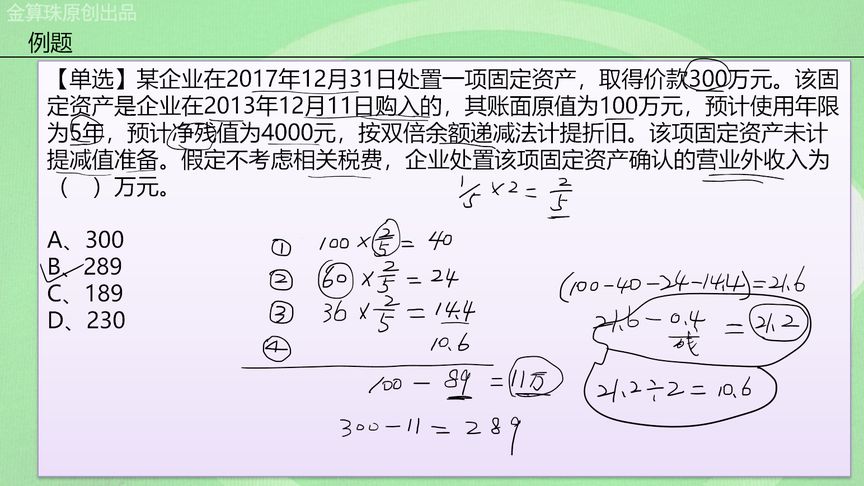 金算珠原创出品
例题
【单选】某企业在2017年12月31日处置一项固定资产，取得价款300万元。该固
定资产是企业在2013年12月11日购入的，其账面原值为100万元，预计使用年限
为5年，预计净残值为4000元，按双倍余额递减法计提折旧。该项固定资产未计
提减值准备。假定不考虑相关税费，企业处置该项固定资产确认的营业外收入为
（　）万元。
1/5 × 2 = 2/5
A、300
B、289
C、189
D、230
① 100 × 2/5 = 40
② 60 × 2/5 = 24
③ 36 × 2/5 = 14.4
④ 10.6
100 - 89 = 11万
300 - 11 = 289
(100-40-24-14.4)=21.6
21.6 - 0.4 = 21.2
残
21.2÷2 = 10.6